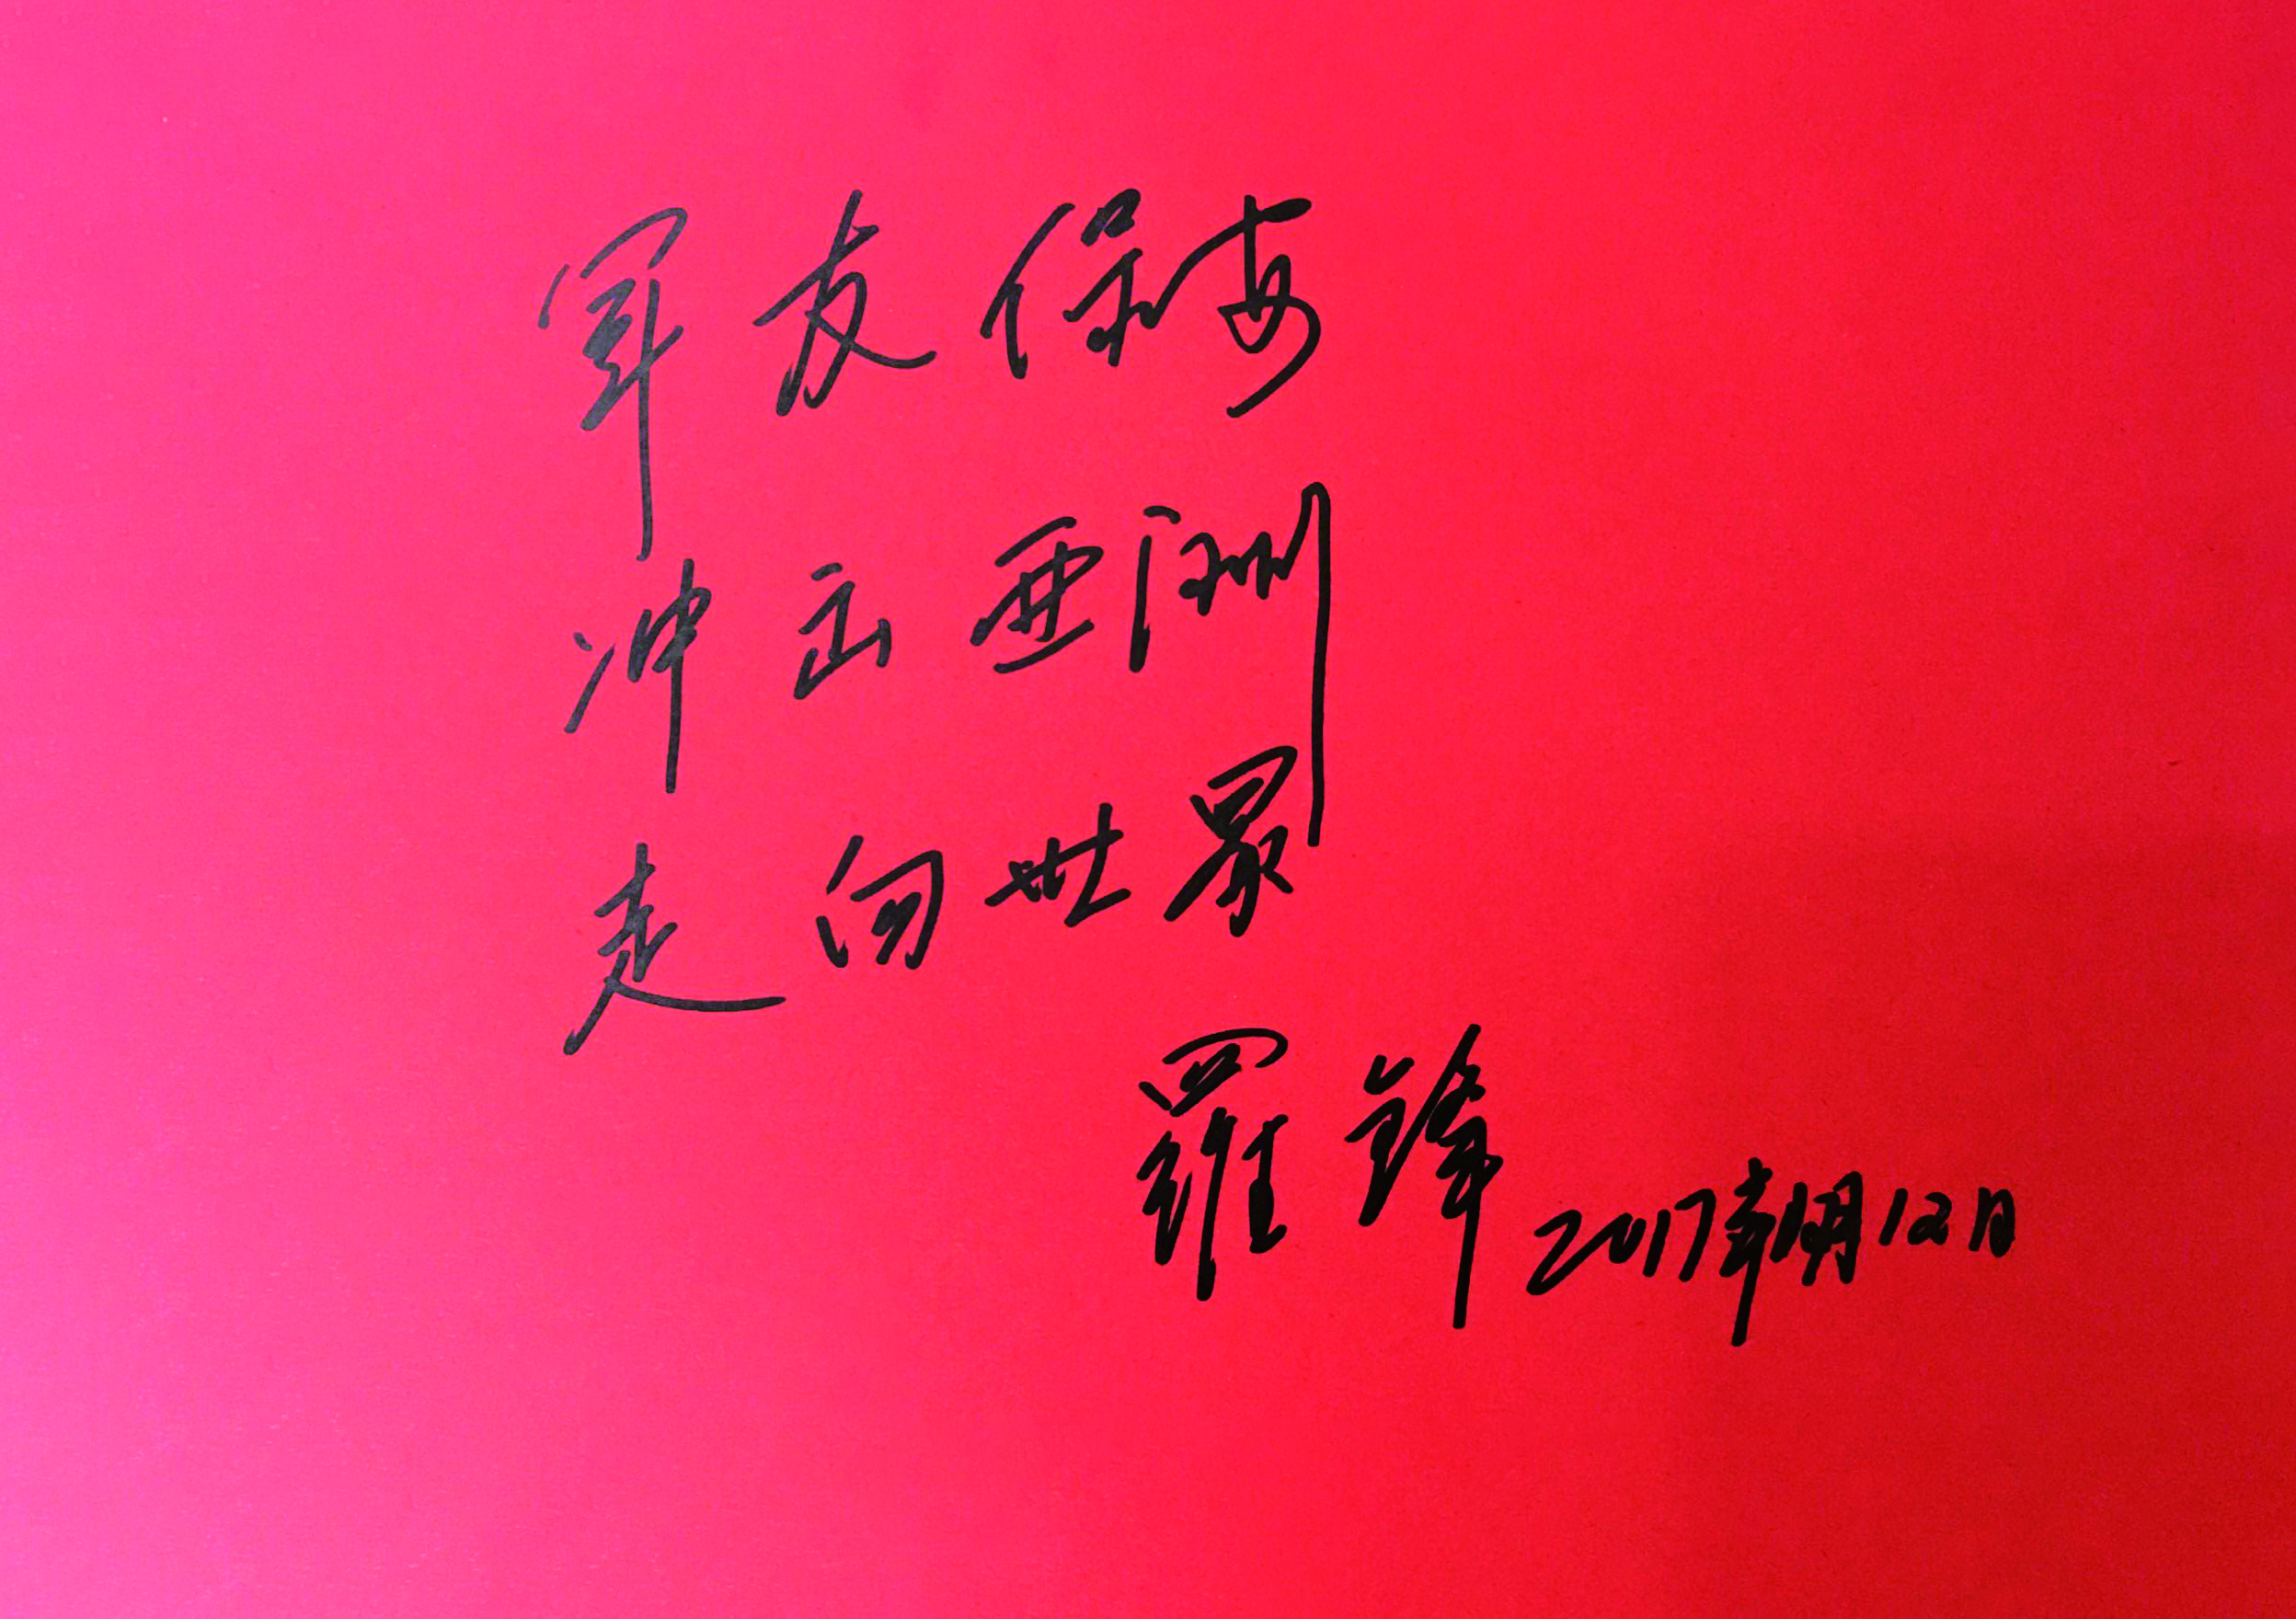 军友保安
冲击亚洲
走向世界
羅鋒 2017年月12日